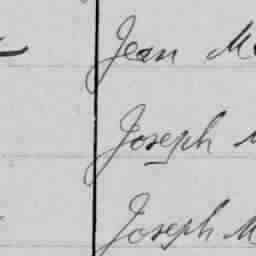 Jean M
Joseph
Joseph M